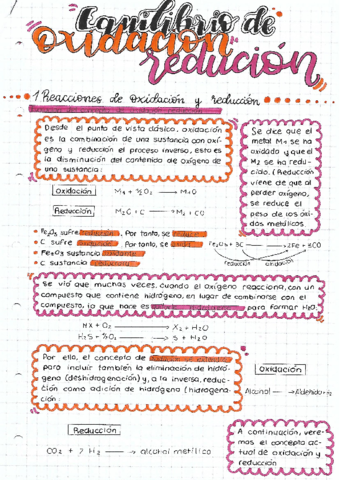 Equilibrio de
oxidación
redución
1. Reacciones de oxidación y reducción
Desde el punto de vista clásico, oxidación
es la combinación de una sustancia con oxí-
geno y reducción el proceso inverso, esto es
la disminución del contenido de oxígeno de
una sustancia:
Se dice que el
metal M1 se ha
oxidado y que el
M2 se ha redu-
cido. (Reducción
viene de que al
perder oxígeno,
se reduce el
peso de los óxi-
dos metálicos.
Oxidación
M1 + ½O2 → M1O
Reducción
M2O + C → M2 + CO
Fe2O3 sufre . Por tanto, se
C sufre . Por tanto, se
Fe2O3 sustancia
C sustancia
Fe2O3 + 3C → 2Fe + 3CO
reducción oxidación
Se vio que muchas veces, cuando el oxígeno reacciona, con un
compuesto que contiene hidrógeno, en lugar de combinarse con el
compuesto, lo que hace es para formar H2O.
HX + O2 → X2 + H2O
H2S + ½O2 → S + H2O
Por ello, el concepto de
para incluir también la eliminación de hidró-
geno (deshidrogenación) y, a la inversa, reduc-
ción como adición de hidrógeno (hidrogena-
ción:
Oxidación
Alcohol → Aldehído + H2
Reducción
CO2 + 2 H2 → alcohol metílico
A continuación, vere-
mos el concepto ac-
tual de oxidación y
reducción